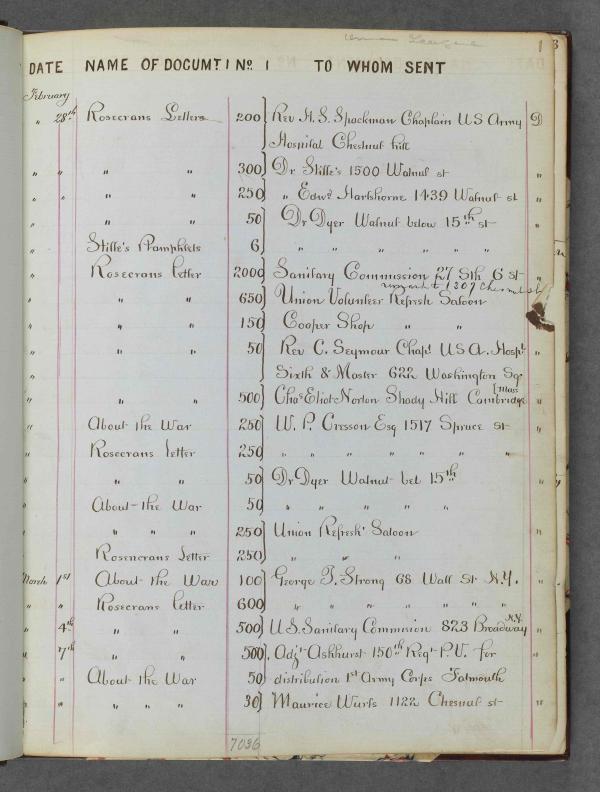 Union League 1
DATE NAME OF DOCUMT Nº. TO WHOM SENT
February
" 28th Rosecrans Letters 200 Rev H. S. Spackman Chaplain US Army D
Hospital Chesnut hill
" " " " 300 Dr Stille's 1500 Walnut st "
" " " " 250 " Edwd Hartshorne 1439 Walnut st "
" " " 50 Dr Dyer Walnut below 15th st "
" Stille's Pamphlets 6 " " " " " " "
" Rosecrans Letter 2000 Sanitary Commission 27 Sth 6 st "
1307 Chesnut st
" " " 650 Union Volunteer Refresh Saloon
" " " 150 Cooper Shop " "
" " " 50 Rev C. Seymour Chapl USA. Hospl "
Sixth & Master 622 Washington Sqr
" " " 500 Chas Eliot Norton Shady Hill Cambridge Mass "
" About the War 250 W. P. Cresson Esq 1517 Spruce st "
" Rosecrans Letter 250 " " " " " " "
" " " 50 Dr Dyer Walnut bel 15th "
About the War 50 " " " " "
" " " 250 Union Refresh Saloon "
Rosencrans Letter 250 " " "
March 1st About the War 100 George T. Strong 68 Wall St N.Y. "
" " Rosecrans Letter 600 " " " " " " "
" 4th " " 500 U.S. Sanitary Commision 823 Broadway N.Y. "
" 7th " " 500 Adjt Ashhurst 150th Regt P.V. for "
" About the War 50 distribution 1st Army Corps Falmouth
" " " " 30 Maurice Wurts 1122 Chesnut st "
7036